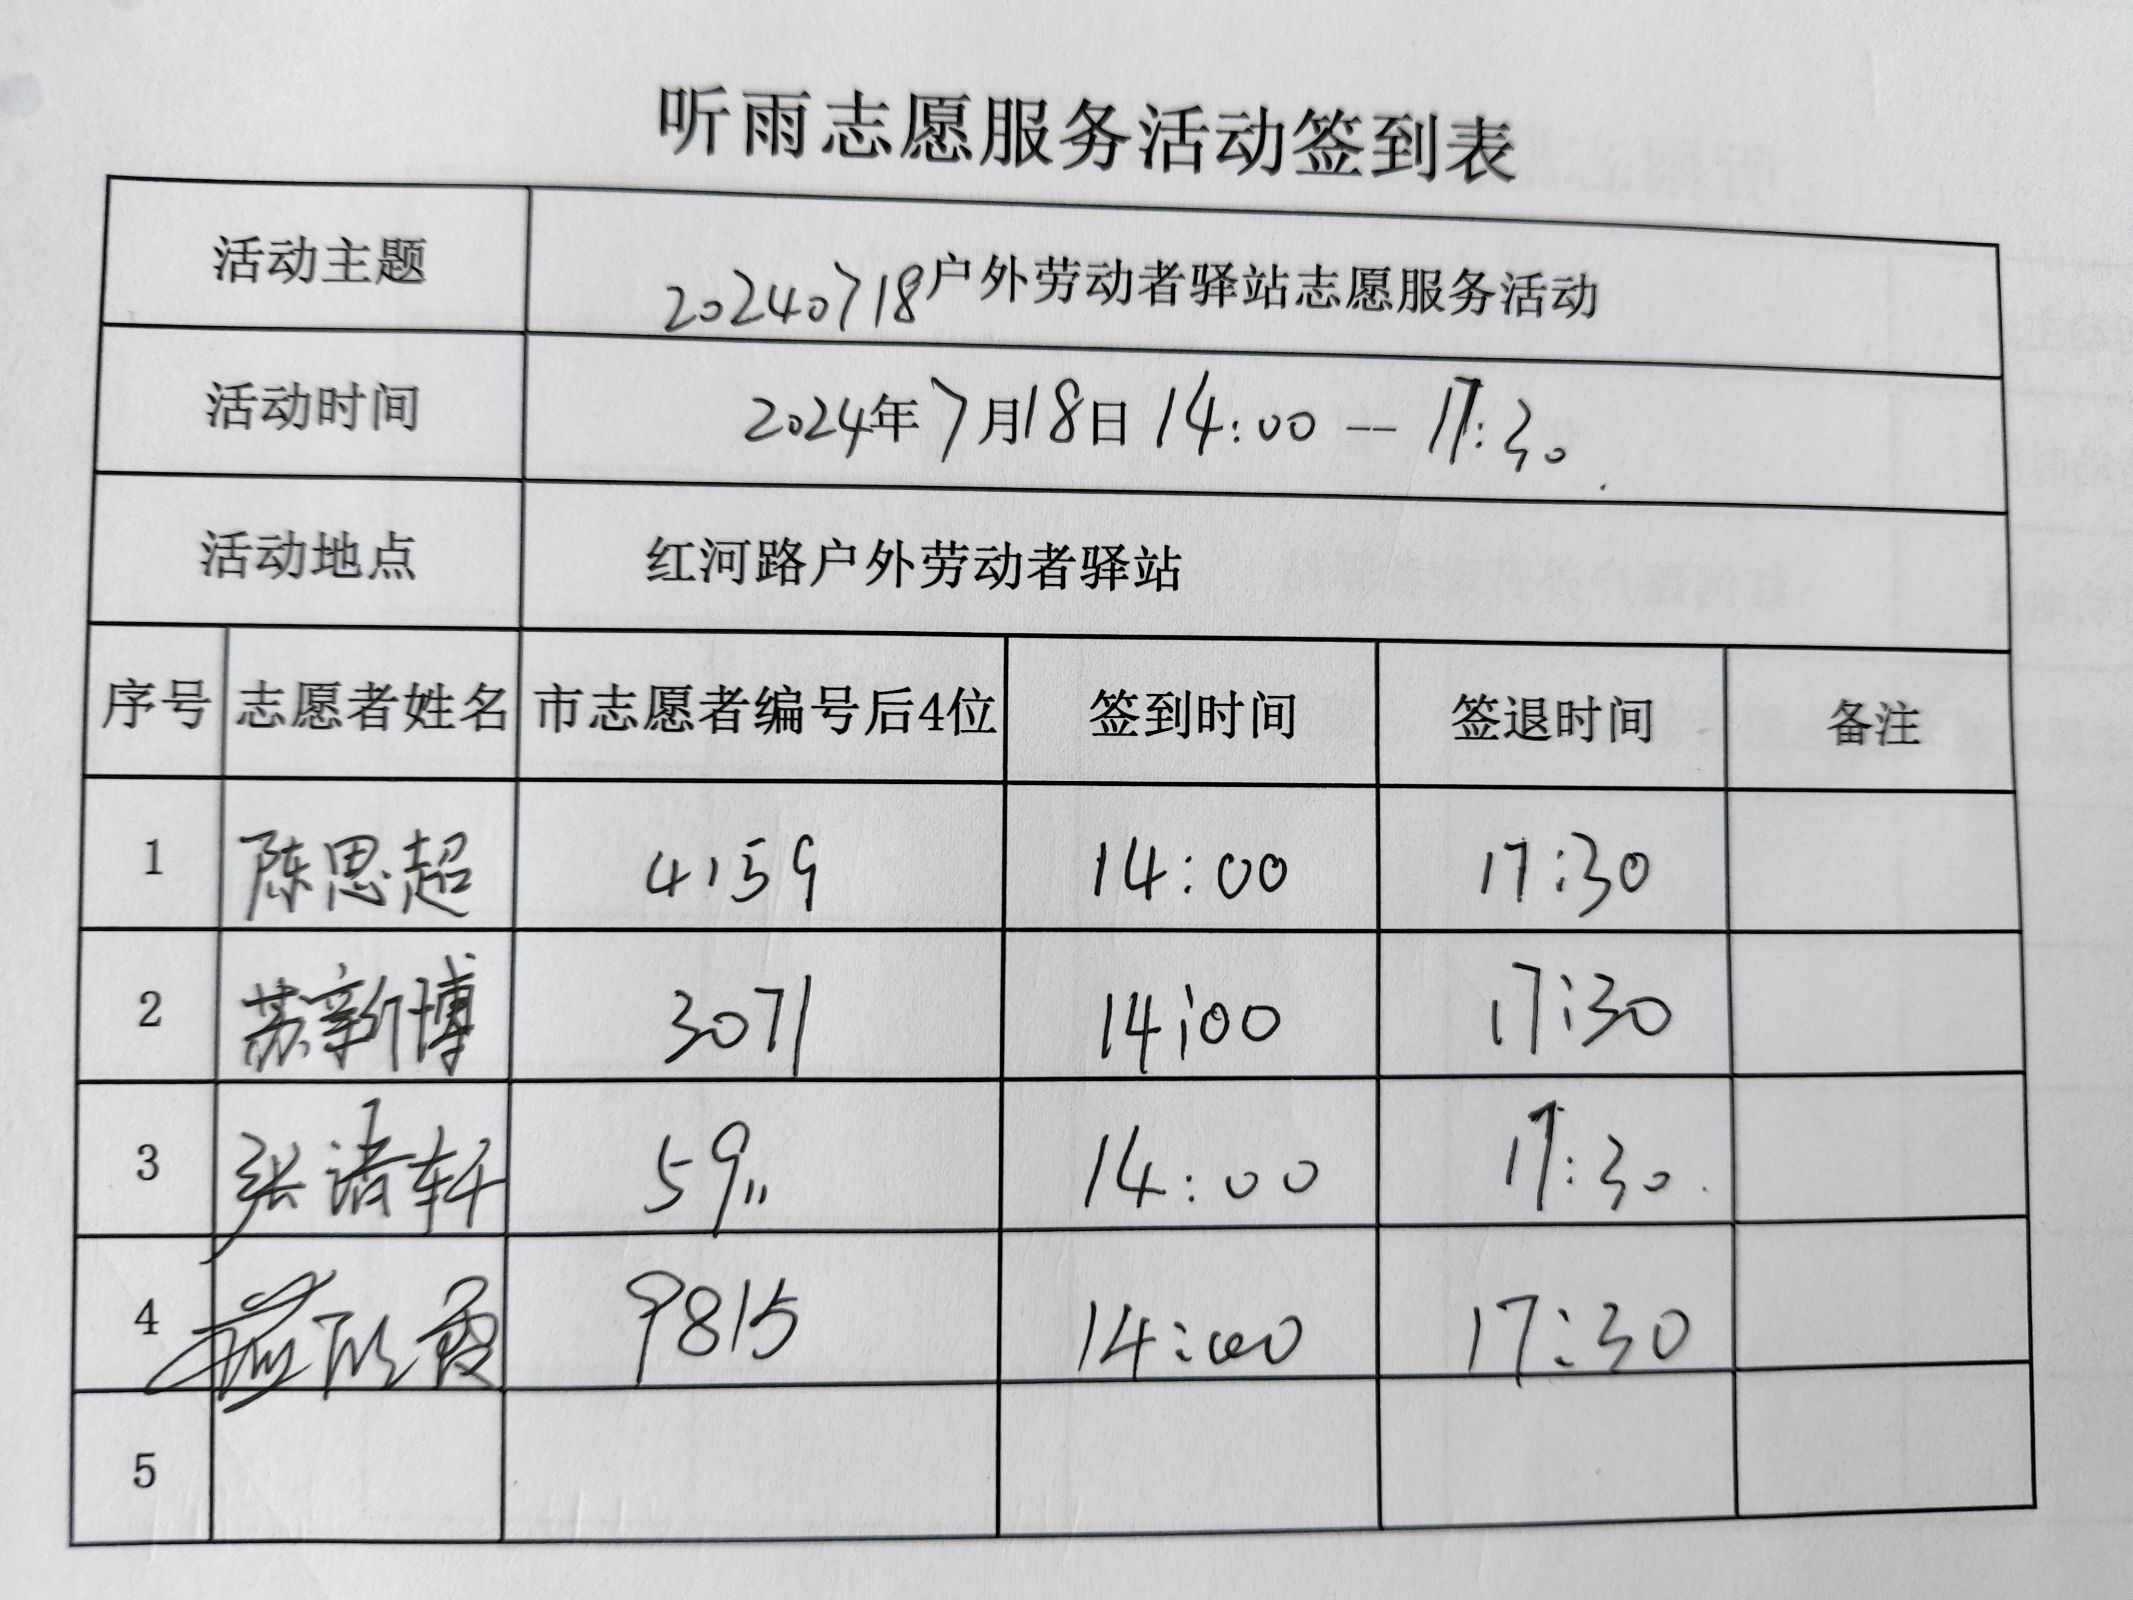 听雨志愿服务活动签到表
活动主题 20240718户外劳动者驿站志愿服务活动
活动时间 2024年7月18日 14:00 -- 17:30
活动地点 红河路户外劳动者驿站
序号 志愿者姓名 市志愿者编号后4位 签到时间 签退时间 备注
1 陈思超 4159 14:00 17:30
2 苏新博 3071 14:00 17:30
3 张诸轩 5911 14:00 17:30
4 9815 14:00 17:30
5